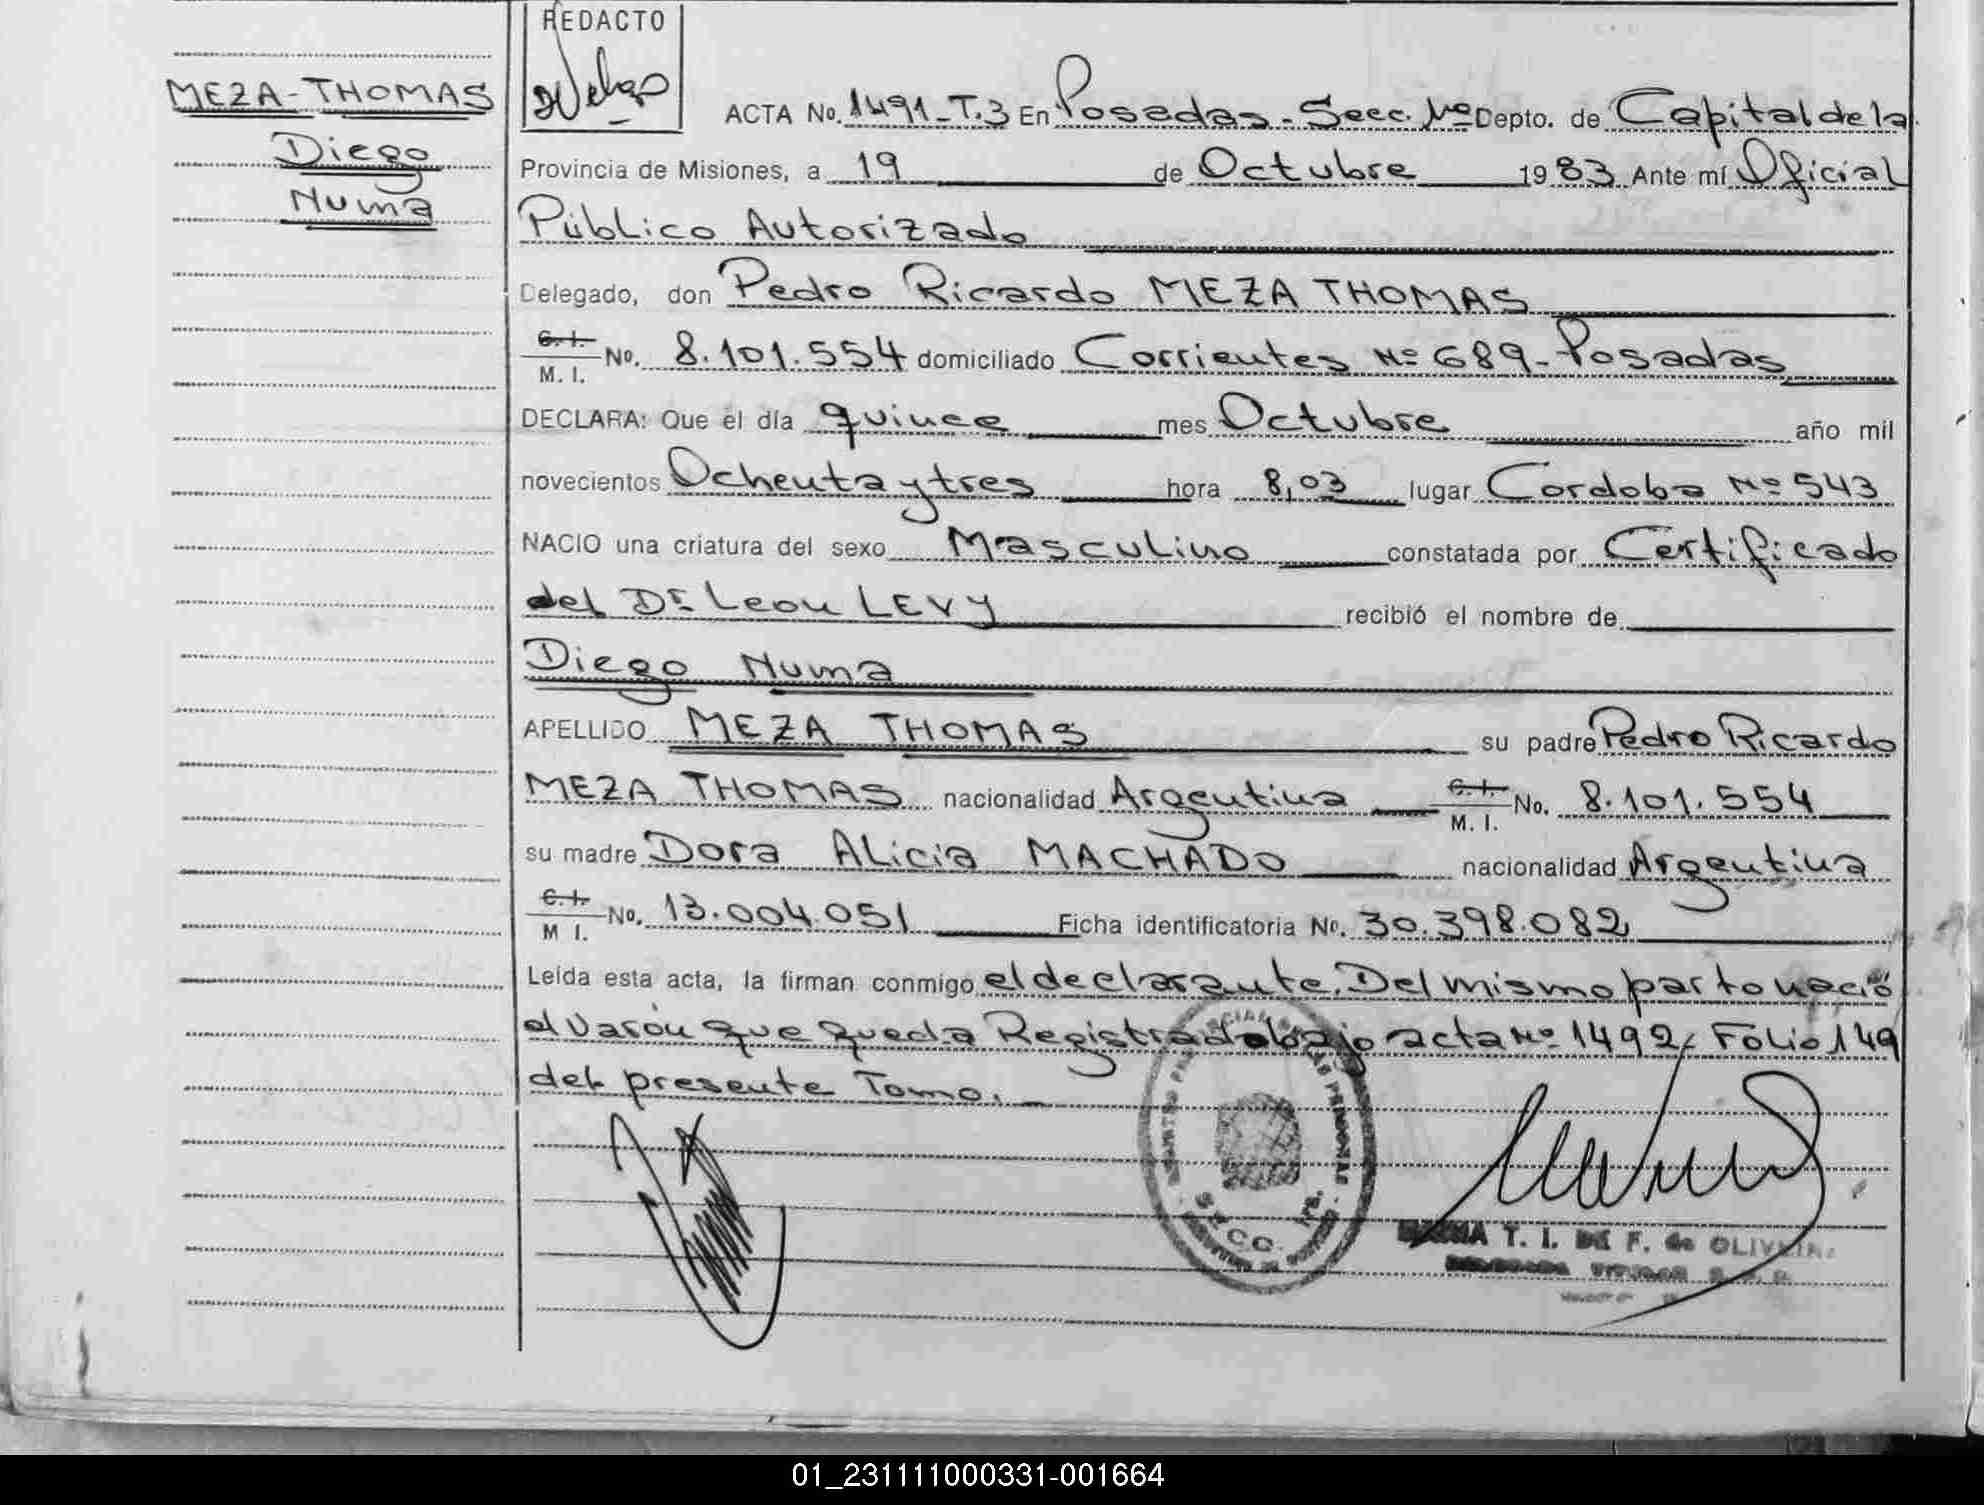 REDACTO
MEZA-THOMAS
Diego
Numa
ACTA No. 1491-T.3 En Posadas-Secc. Nº Depto. de Capital de la
Provincia de Misiones, a 19 de Octubre 1983 Ante mí Oficial
Público Autorizado
Delegado, don Pedro Ricardo MEZA THOMAS
C.I. M.I. No. 8.101.554 domiciliado Corrientes Nº 689-Posadas
DECLARA: Que el día quince mes Octubre año mil
novecientos Ochenta y tres hora 8,03 lugar Cordoba Nº 543
NACIO una criatura del sexo Masculino constatada por Certificado
del Dr. Leon LEVY recibió el nombre de
Diego Numa
APELLIDO MEZA THOMAS su padre Pedro Ricardo
MEZA THOMAS nacionalidad Argentina C.I. M.I. No. 8.101.554
su madre Dora Alicia MACHADO nacionalidad Argentina
C.I. M I. No. 13.004.051 Ficha identificatoria No. 30.398.082
Leída esta acta, la firman conmigo el declarante. Del mismo parto nació
el varón que queda Registrado bajo acta Nº 1492, Folio 149
del presente Tomo.
T. I. DE F. de OLIVEIRA
01_231111000331-001664